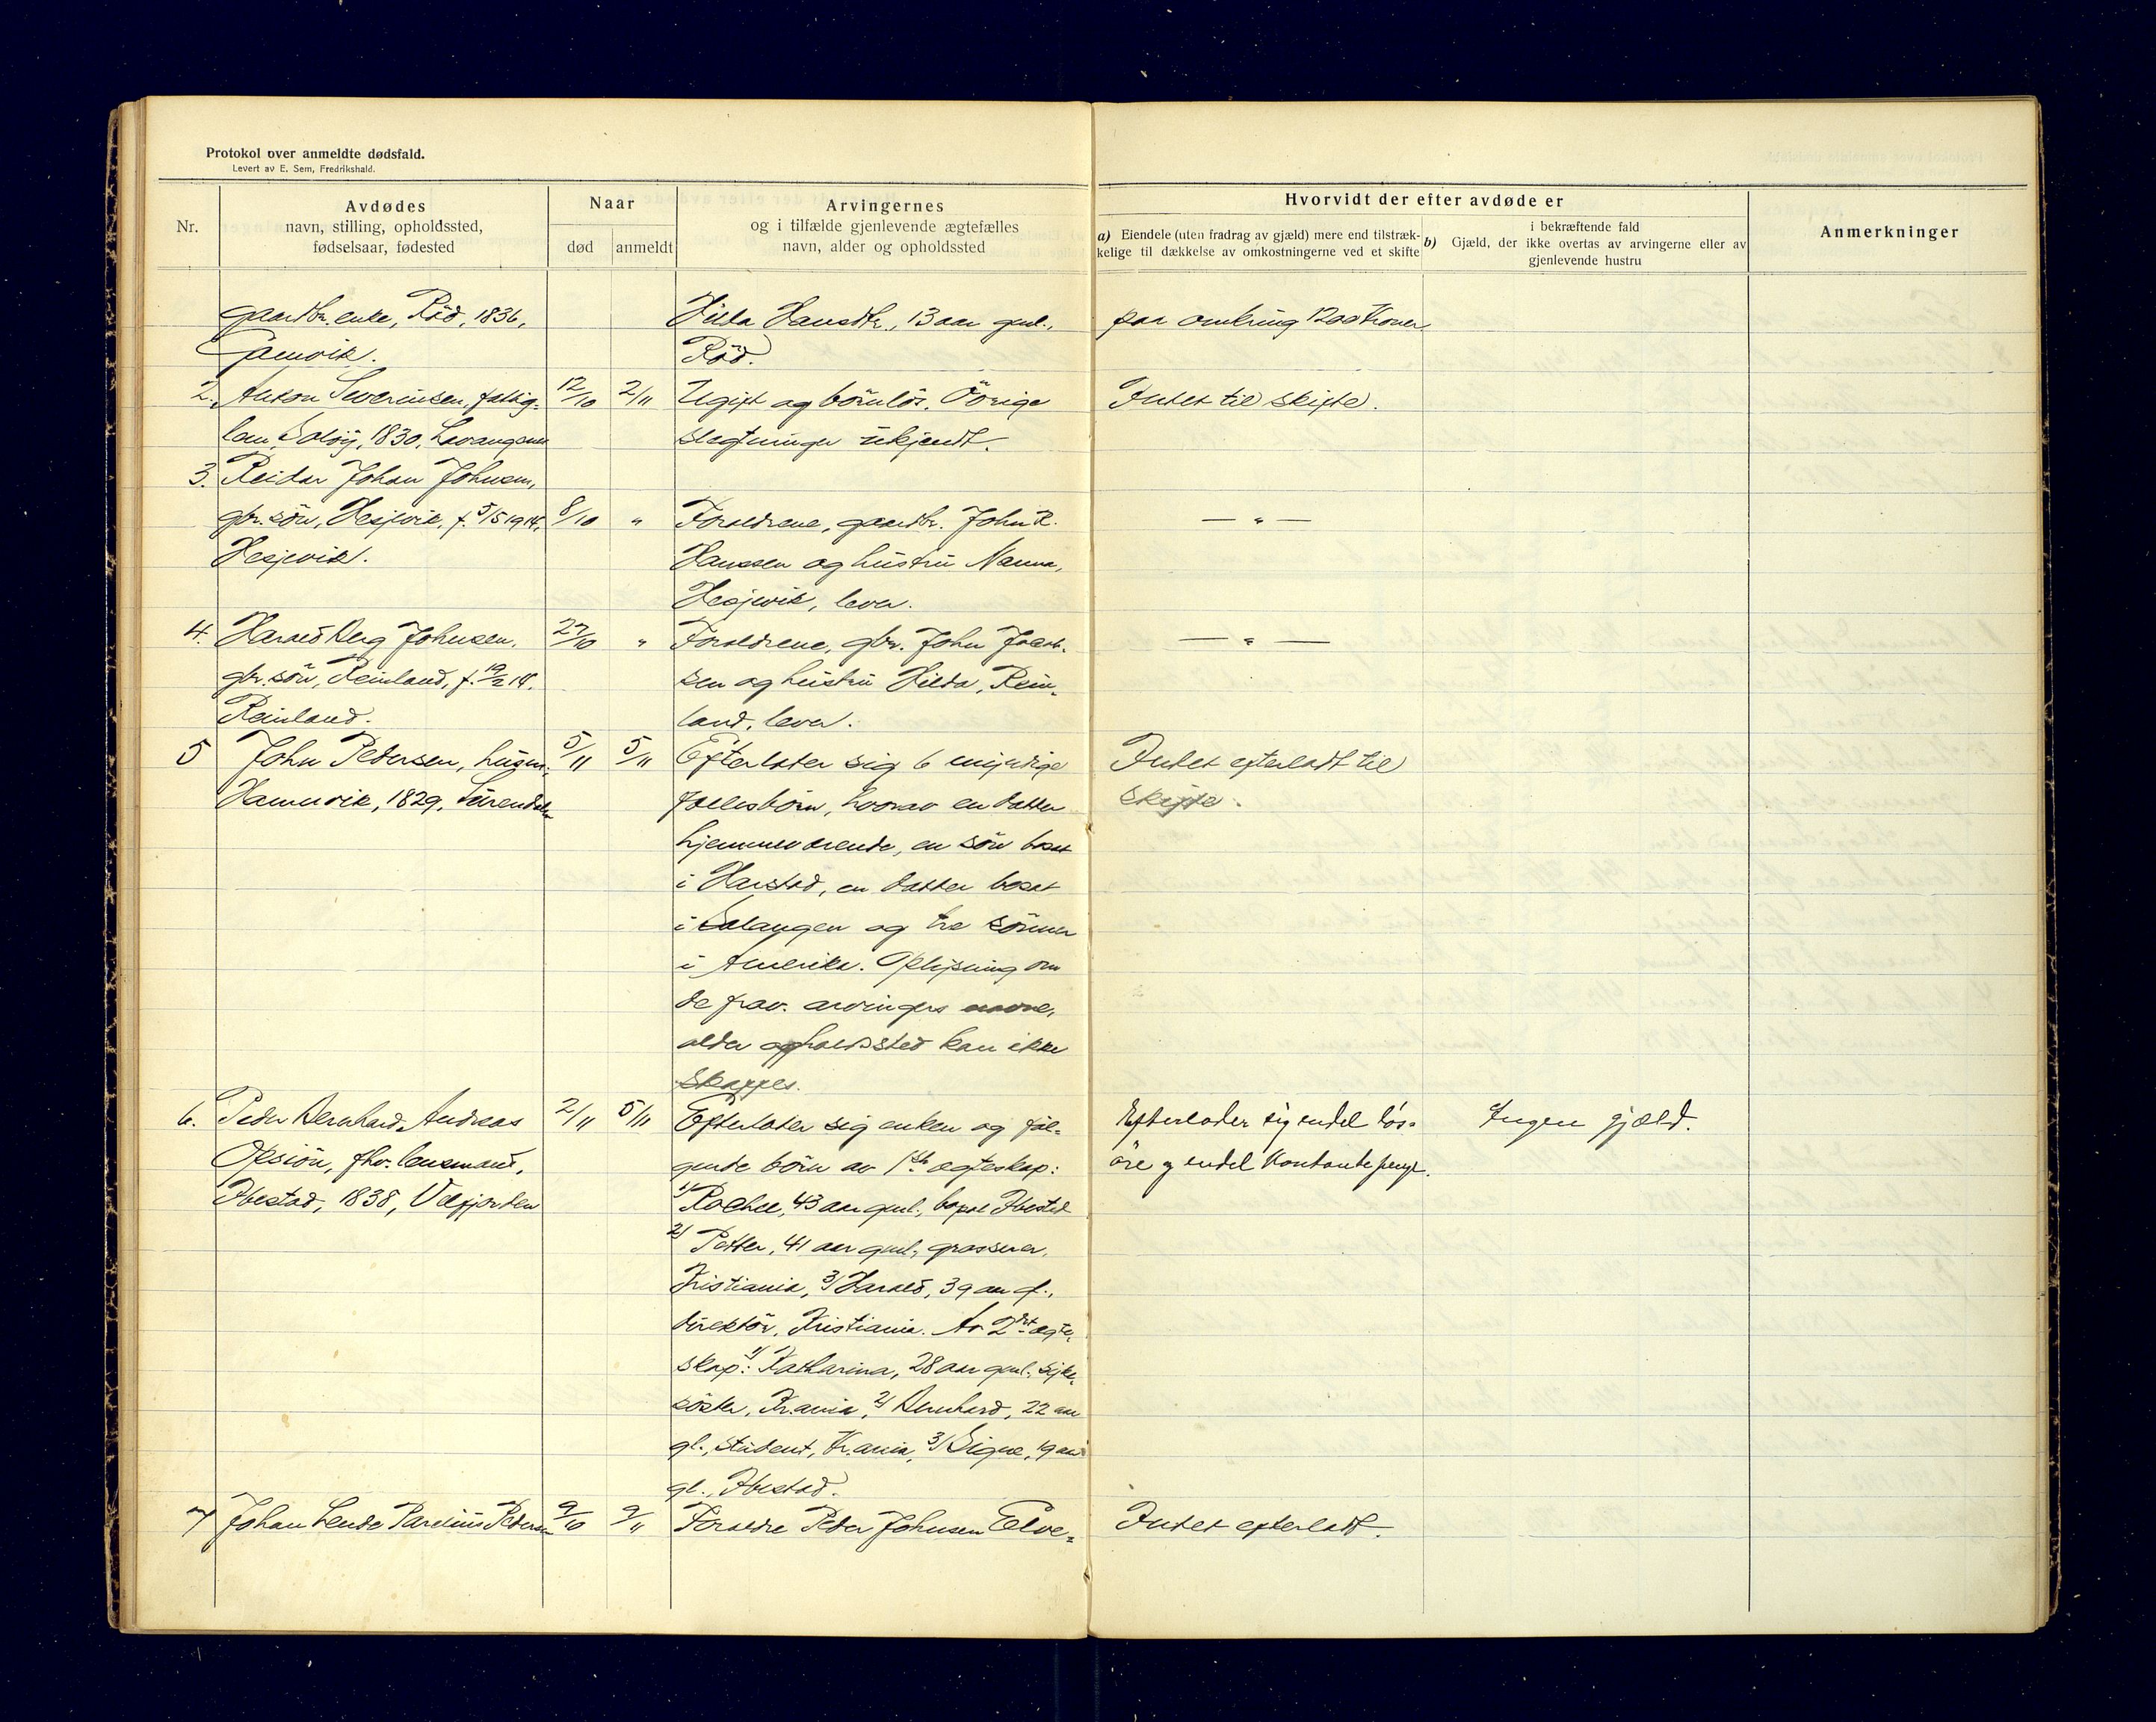 Protokol over anmeldte dødsfald.
Levert av E. Sem, Fredrikshald.
Nr.
Avdødes
navn, stilling, opholdssted,
fødselsaar, fødested
Naar
død
anmeldt
Arvingernes
og i tilfælde gjenlevende ægtefælles
navn, alder og opholdssted
Hvorvidt der efter avdøde er
a) Eiendele (uten fradrag av gjæld) mere end tilstræk-
kelige til dækkelse av omkostningerne ved et skifte
b) Gjæld, der
i bekræftende fald
ikke overtas av arvingerne eller av
gjenlevende hustru
Anmerkninger
gaardbr. enke, Röd, 1836, Hilda Hansdtr., 13 aar gml., paa omkring 1200 Kroner.
Gamvik. Röd.
2. Anton Severinsen, fattig- 12/10 2/11 Ugift og börnlös. Övrige Intet til skifte.
lem, Salöy, 1830, Levangen slegtninger ukjendt.
3. Reidar Johan Johnsen,
gbr. sön, Hesjevik, f. 5/5 1914, 8/10 " Foreldrene, gaardbr. John R. — " —
Hesjevik. Hanssen og hustru Nanna,
Hesjevik, lever.
4. Harald Berg Johnsen, 27/10 " Foreldrene, gbr. John — " —
gbr. sön, Reinland, f. 19/2 14, sen og hustru Hilda, Rein-
Reinland. land, lever.
5 John Pedersen, husm., 5/11 5/11 Efterlater sig 6 myndige Intet efterladt til
Hamnvik, 1829, fællesbörn, hvorav en datter skifte.
hjemmeværende, en sön bosat
i Harstad, en datter bosat
i Salangen og tre sönner
i Amerika. Oplysning om
de frav. arvingers navne,
alder opholdssted kan ikke
skaffes.
6. Peder Bernhard Andreas 2/11 5/11 Efterlater sig enken og föl- Efterlader sig endel lös- Ingen gjæld.
fhv. lensmand, gende börn av 1ste ægteskap: öre og endel Kontante penge.
Ibestad, 1838, 1/ Rachel, 43 aar gml., Ibestad
2/ Petter, 41 aar gml., grosserer,
Kristiania, 3/ Harald, 39 aar g.,
direktör, Kristiania. Av 2det ægte-
skap: 1/ Katharina, 28 aar gml., syke-
söster, Kr.ania, 2/ Bernhard, 22 aar
gl., student, Kr.ania, 3/ Signe, 19 aar
gl., Ibestad.
7 Johan Pareliüs Pedersen 9/10 9/11 Foreldre Peder Johnsen Elve- Intet efterladt.